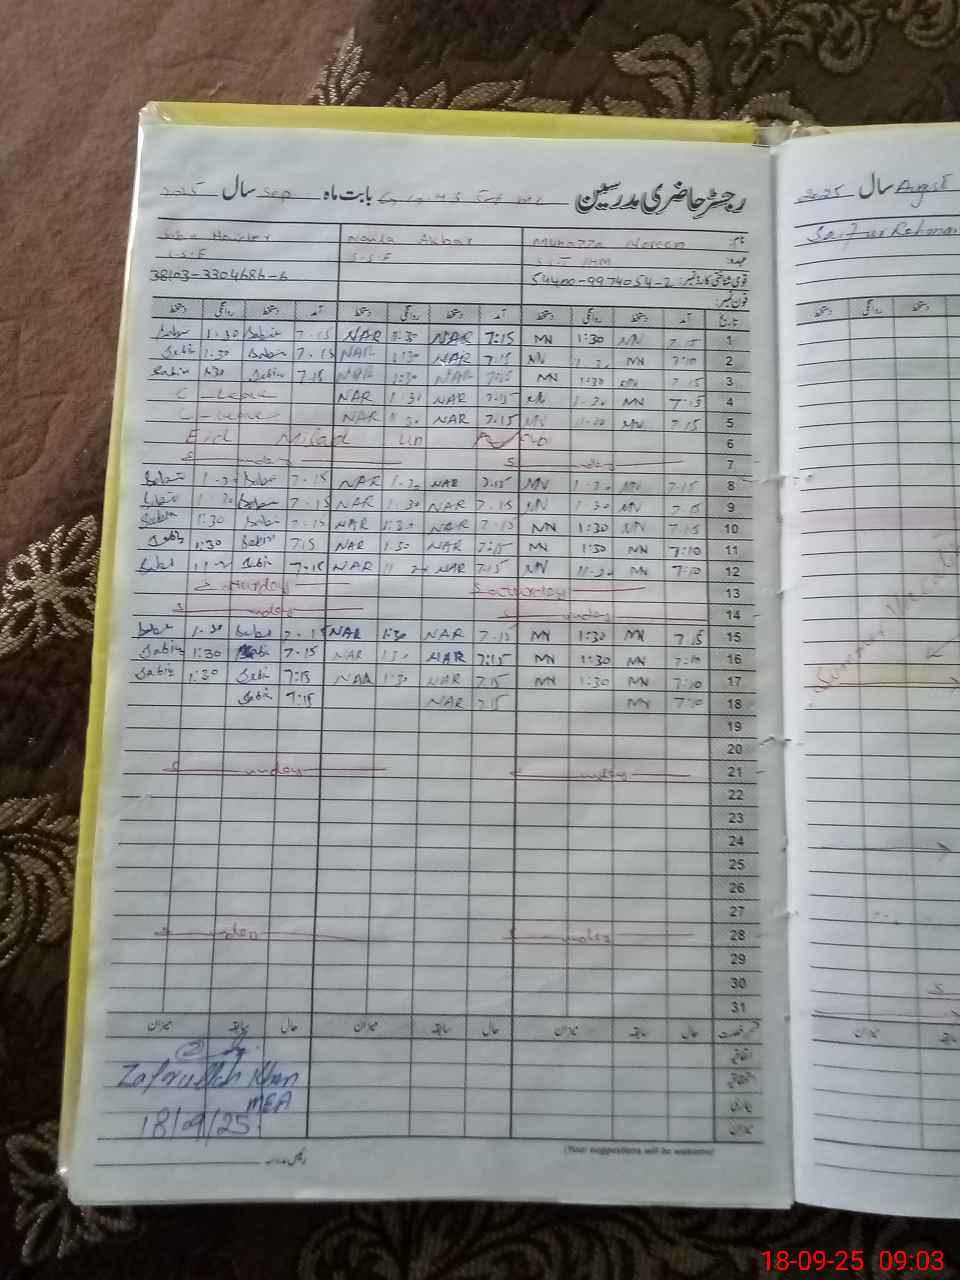 رجسٹر حاضری مدرسین بابت ماہ Sep سال 2025
سال August 2025
نام: Munazza Noreen Naila Akbar
عہدہ: S.S.F
قومی شناختی کارڈ نمبر: 54400-9974054-2 38103-3304686-6
فون نمبر:
تاریخ آمد دستخط روانگی دستخط آمد دستخط روانگی دستخط آمد دستخط روانگی دستخط
1 7.15 MN 1:30 MN 7:15 NAR 1:30 NAR 7.15 Sabin 1:30
2 7:10 MN 1.30 MN 7.15 NAR 1:30 NAR 7.15 Sabin 1:30 Sabin
3 7.15 MN 1:30 MN 7:15 NAR 1:30 NAR 7.15 Sabin 1:30 Sabin
4 7:15 MN 1.30 MN 7:15 NAR 1:30 NAR C-Leave
5 7.15 MN 11.30 MN 7.15 NAR 11:30 NAR C-Leave
6 Eid Milad un Nabi
7 Sunday Sunday
8 7.15 MN 1.30 MN 7:15 NAR 1.30 NAR 7.15 Sabin 1.30 Sabin
9 7.15 MN 1.30 MN 7.15 NAR 1.30 NAR 7.15 Sabin 1.30 Sabin
10 7.15 MN 1:30 MN 7.15 NAR 1:30 NAR 7.15 Sabin 1:30 Sabin
11 7:10 MN 1:30 MN 7:15 NAR 1.30 NAR 7.15 Sabin 1:30 Sabin
12 7:10 MN 11.30 MN 7.15 NAR 11.30 NAR 7.15 Sabin 11.30 Sabin
13 Saturday Saturday
14 Sunday Sunday
15 7.15 MN 1:30 MN 7.15 NAR 1:30 NAR 7.15 Sabin 1.30 Sabin
16 7:10 MN 1:30 MN 7:15 NAR 1:30 NAR 7.15 Sabin 1:30 Sabin
17 7:10 MN 1:30 MN 7.15 NAR 1:30 NAR 7:15 Sabin 1:30 Sabin
18 7:10 MN 7.15 NAR 7:15 Sabin
19
20
21 Sunday Sunday
22
23
24
25
26
27
28 Sunday Sunday
29
30
31
حال سابقہ میزان حال سابقہ میزان حال سابقہ میزان
Zafarullah Khan
MEA
18/09/25
(Your suggestions will be welcome)
18-09-25 09:03